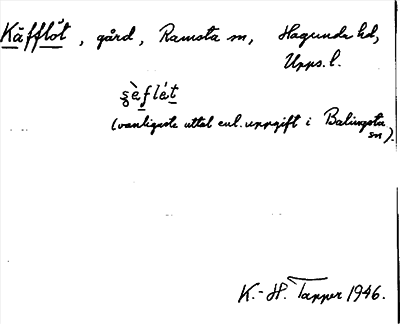 Käfflöt, gård, Ramsta sn, Hagunda hd,
Upps. l.
(vanligaste uttal enl. uppgift i Balingsta
sn).
K.-H. Tapper 1946.